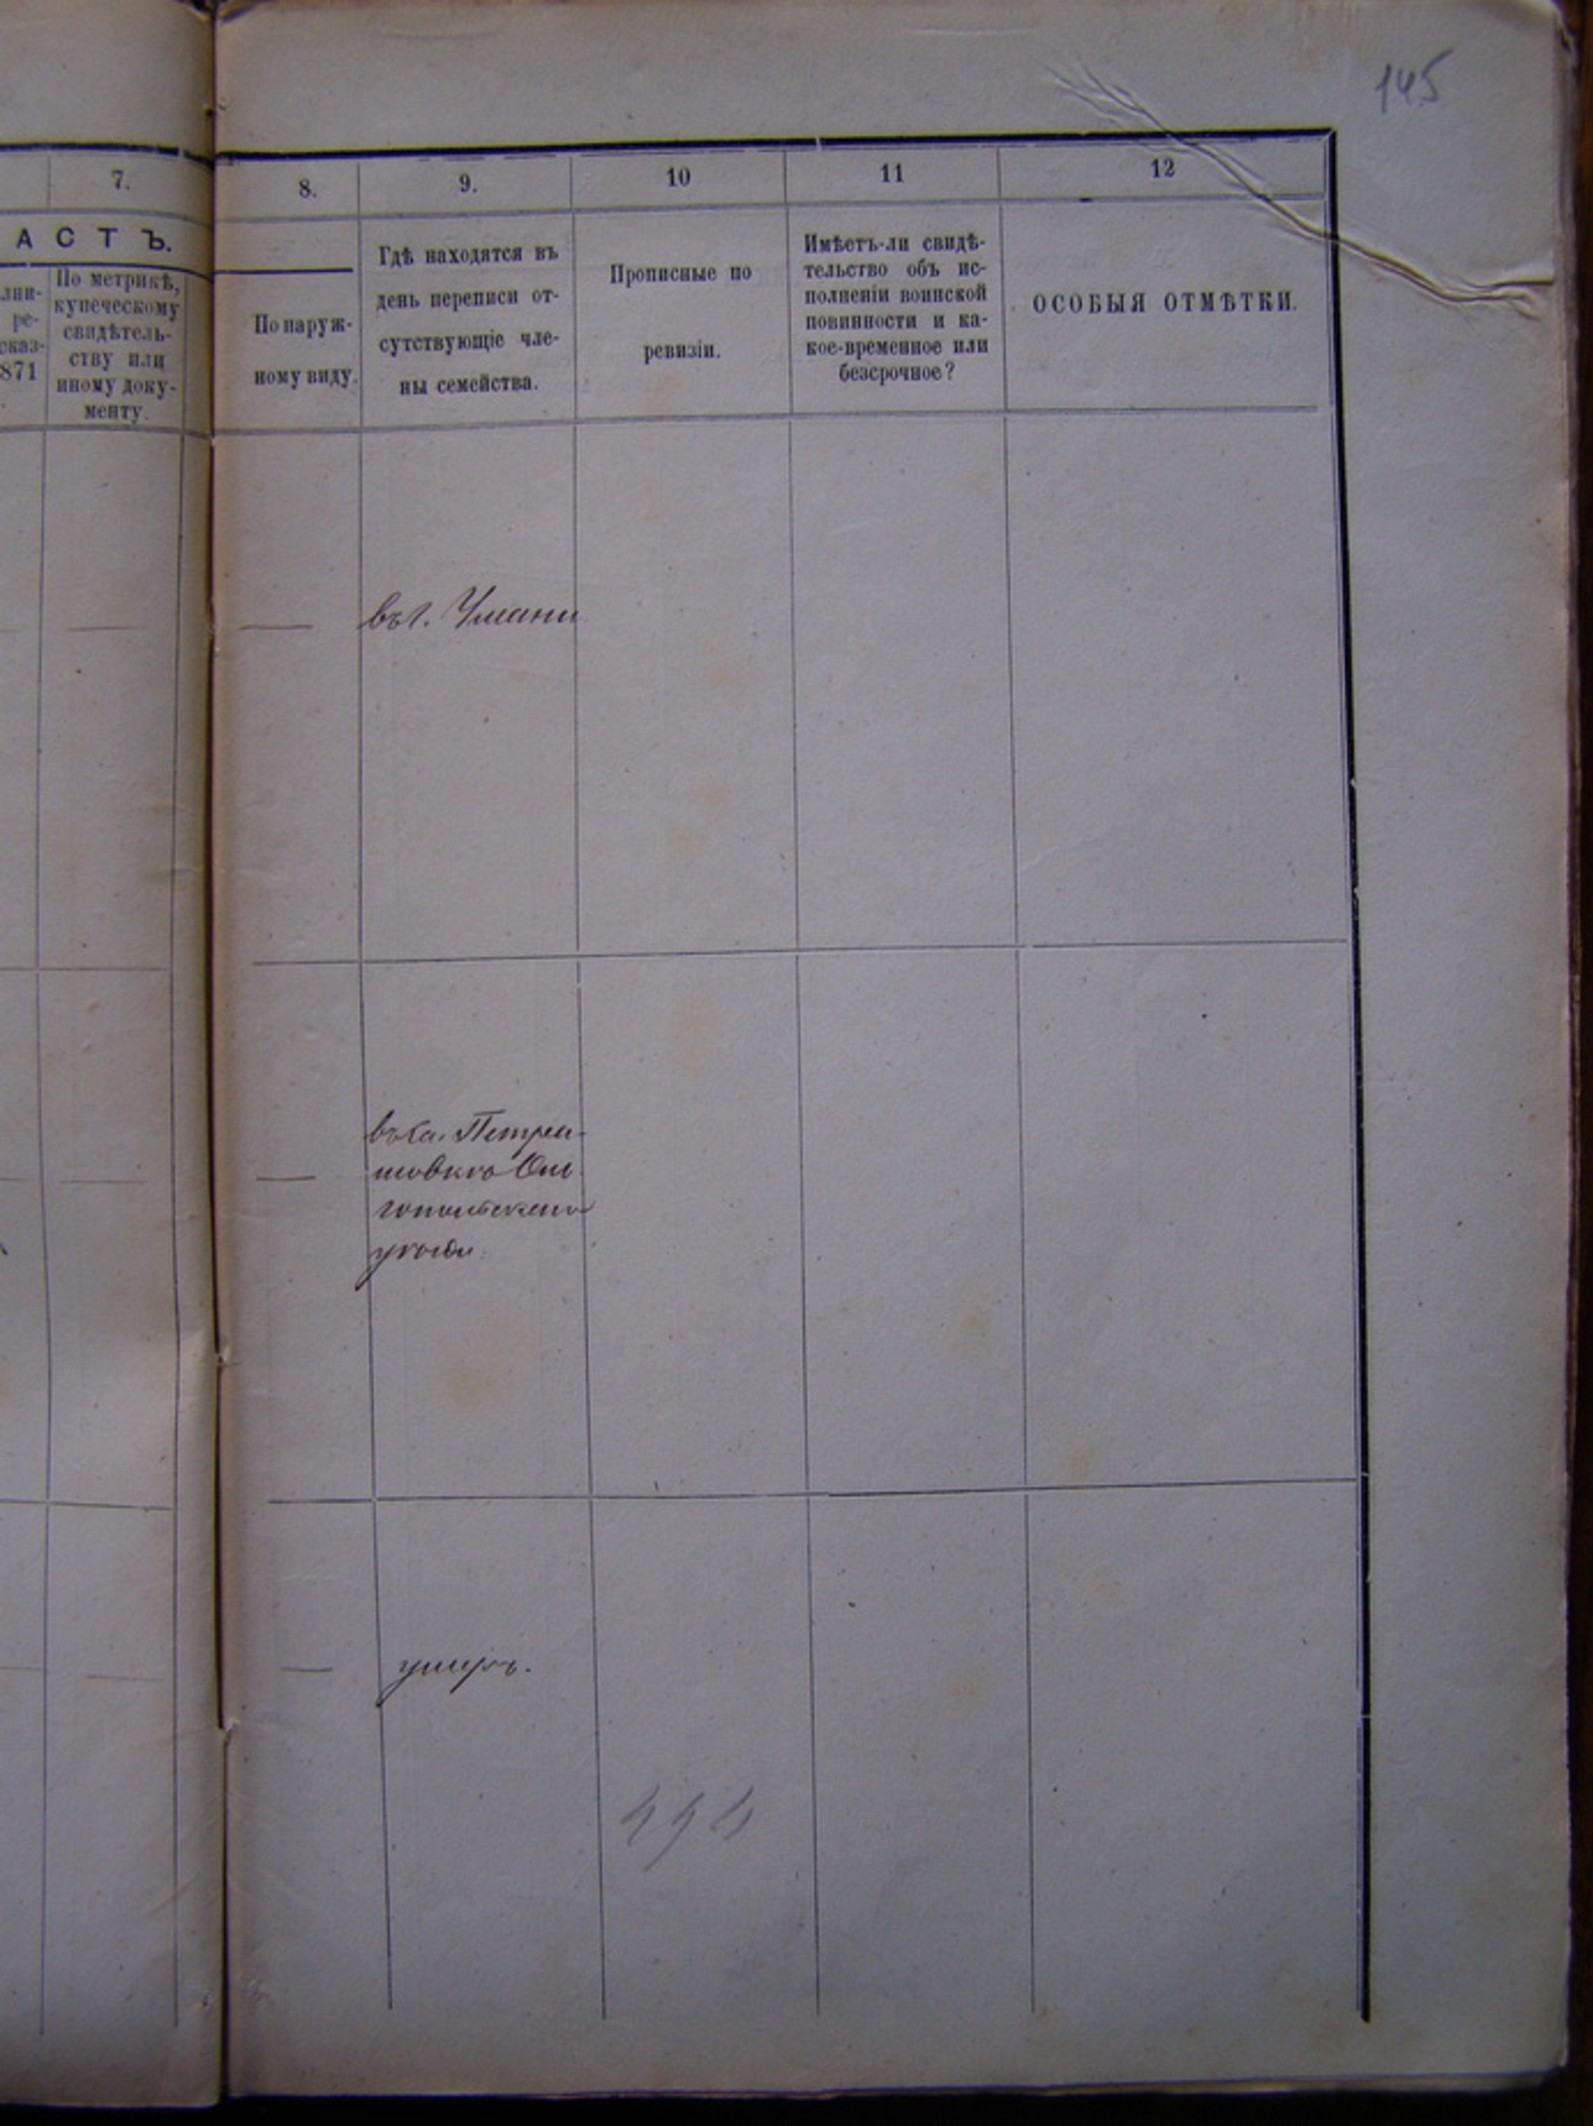 145
7.
8.
9.
10
11
12
АСТЪ.
лни-
ре-
сказ-
871
По метрикѣ,
купеческому
свидѣтель-
ству или
иному доку-
менту.
По наруж-
ному виду.
Гдѣ находятся въ
день переписи от-
сутствующіе чле-
ны семейства.
Прописные по
ревизіи.
Имѣетъ-ли свидѣ-
тельство объ ис-
полненіи воинской
повинности и ка-
кое-временное или
безсрочное?
ОСОБЫЯ ОТМѢТКИ.
въ г. Умани
Оль
гопольскаго
уѣзда.
умеръ.